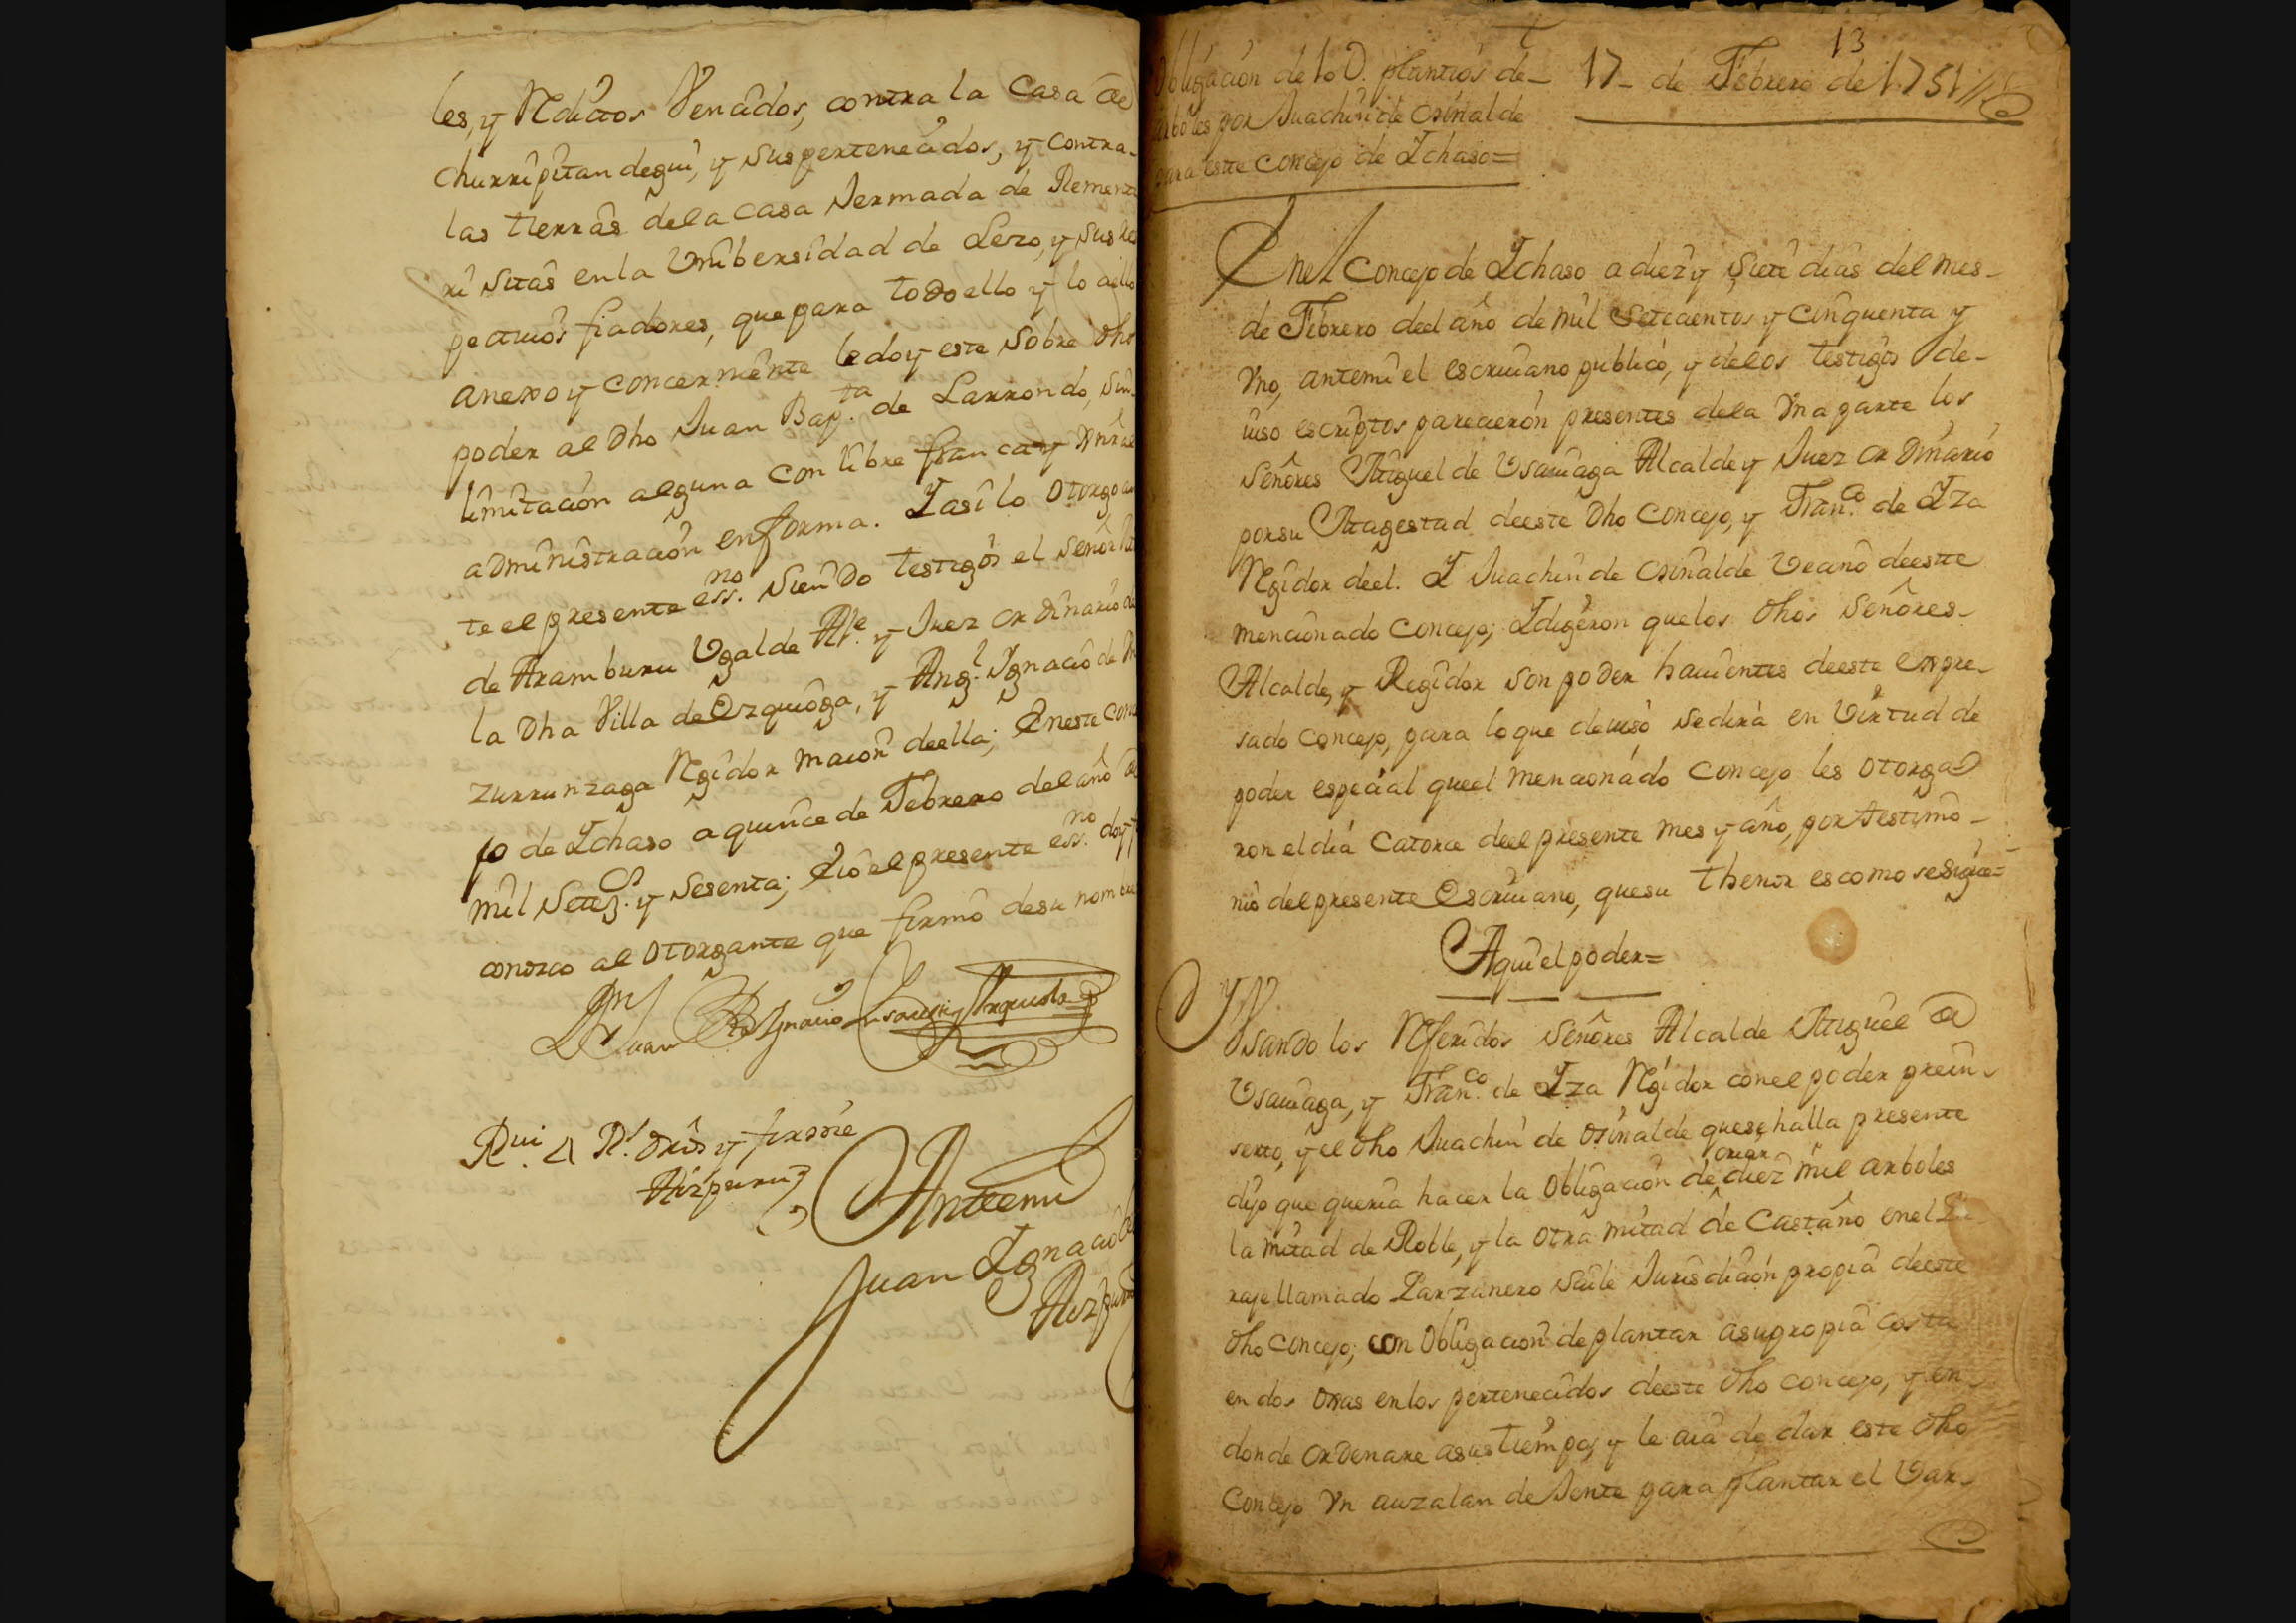 les, y Rditos Vencidos, contra la Casa de
Churripitandegui, y sus pertenecidos, y contra
las tierras dela casa Iermada de Rementa
ri sitas enla Unibersidad de Lezo, y sus res
pectiuos fiadores, que para todo ello y lo a ello
anexo y concerniente ledoy este sobre dho
poder al dho Juan Bap.ta de Larrondo, sin
limitacion alguna con libre franca y Gnral
administracion enforma. Y asi lo otorgo an
te el presente ess.no siendo testigos el señor
de Aramburu Ugalde Al.e y Juez ordinario de
la dha Villa de Ezquioga, y Ang.l Ignacio de
zurrunzaga Rgidor maior deella; Eneste conce
jo de Ichaso a quince de Febrero del año de
mil Setez.s y sesenta; E io el presente ess.no doy fe
conozco al otorgante que firmó desu nombre
D.n Juan Bap.ta Ignacio
Rui. a R.l dros y firmé
Aizpuru
Antemi
Juan Ignacio de
Aizpuru
13
Obligacion de 10 U. plantios de
arboles por Juachin de Osinalde
para este concejo de Ichaso=
17- de Febrero de 1751//
Enel Concejo de Ichaso a diez y siete dias del mes
de Febrero deel año de mil setecientos y cinquenta y
Vno, antemi el escriuano publico, y delos testigos de
iuso escriptos parecieron presentes dela Vna parte los
señores Miguel de Usauiaga Alcalde y Juez ordinario
porsu Magestad deeste dho concejo, y Fran.co de Iza
Rgidor deel. I Juachin de Osinalde Vecino deeste
mencionado concejo; I digeron quelos dhos señores
Alcalde, y Regidor son poder hauientes deeste expre
sado concejo, para lo que deiuso sedirá en Virtud de
poder especial queel mencionado concejo les otorga
ron el dia Catorce deel presente mes y año, por testimo
nio del presente Escriuano, quesu thenor es como sesigue=
Aqui el poder=
Y Vsando los Rferidos señores Alcalde Miguel de
Usauiaga, y Fran.co de Iza Rgidor conel poder prein
serto, y el dho Juachin de Osinalde quese halla presente
criar
dijo que queria hacer la obligacion de diez mil arboles
la mitad de Roble, y la otra mitad de Castaño enel Pa
raje llamado Larzanero Suelo Jurisdicion propia deeste
dho concejo; con obligacion de plantar asu propia costa
en dos oras enlos pertenecidos deeste dho concejo, y en
donde ordenare asus tiempos, y le aia de dar este dho
Concejo Vn auzalan de Jente para plantar el Var